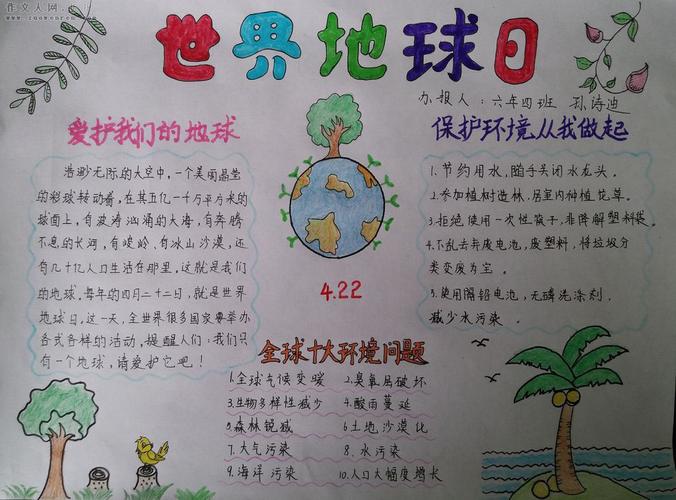 作文人网
www.zuowenren.com
世界地球日
办报人：六年四班 孙诗迪
爱护我们的地球
浩渺无际的太空中，一个美丽晶莹
的彩球转动着，在其五亿一千万平方米的
球面上，有波涛汹涌的大海，有奔腾
不息的长河，有峻岭，有冰山沙漠，还
有几十亿人口生活在那里，这就是我们
的地球，每年的四月二十二日，就是世界
地球日，这一天，全世界很多国家要举办
各式各样的活动，提醒人们：我们只
有一个地球，请爱护它吧！
4.22
保护环境从我做起
1.节约用水，随手关闭水龙头。
2.参加植树造林，居室内种植花草。
3.拒绝使用一次性筷子，非降解塑料袋。
4.不乱丢弃废电池，废塑料，将垃圾分
类变废为宝。
5.使用隔铅电池，无磷洗涤剂，
减少水污染。
全球十大环境问题
1.全球气候变暖 2.臭氧层破坏
3.生物多样性减少 4.酸雨蔓延
5.森林锐减 6.土地沙漠化
7.大气污染 8.水污染
9.海洋污染 10.人口大幅度增长